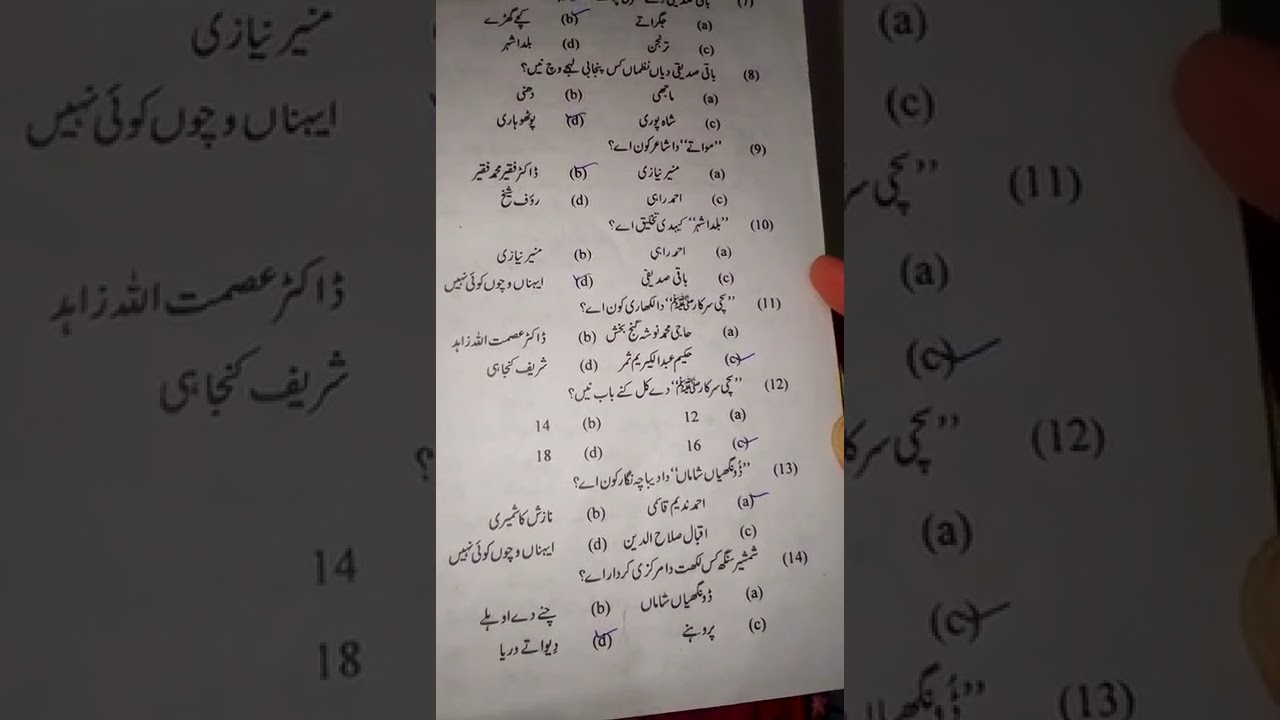 (a) جگراتے (b) کچے گھڑے
(c) ترنجن (d) بلدا شہر
(8) باقی صدیقی دیاں نظماں کس پنجابی لہجے وچ نیں؟
(a) ماجھی (b) دھنی
(c) شاہ پوری (d) پوٹھوہاری
(9) ’’مواتے‘‘ دا شاعر کون اے؟
(a) منیر نیازی (b) ڈاکٹر فقیر محمد فقیر
(c) احمد راہی (d) رؤف شیخ
(10) ’’بلدا شہر‘‘ کیہدی تخلیق اے؟
(a) احمد راہی (b) منیر نیازی
(c) باقی صدیقی (d) ایہناں وچوں کوئی نہیں
(11) ’’سچی سرکار ﷺ‘‘ دا لکھاری کون اے؟
(a) حاجی محمد نوشہ گنج بخش (b) ڈاکٹر عصمت اللہ زاہد
(c) حکیم عبدالکریم ثمر (d) شریف کنجاہی
(12) ’’سچی سرکار ﷺ‘‘ دے کل کنے باب نیں؟
(a) 12 (b) 14
(c) 16 (d) 18
(13) ’’ڈونگھیاں شاماں‘‘ دا دیباچہ نگار کون اے؟
(a) احمد ندیم قاسمی (b) نازش کاشمیری
(c) اقبال صلاح الدین (d) ایہناں وچوں کوئی نہیں
(14) شمشیر سنگھ کس لکھت دا مرکزی کردار اے؟
(a) ڈونگھیاں شاماں (b) چنے دے اوہلے
(c) پروہنے (d) دیوا تے دریا